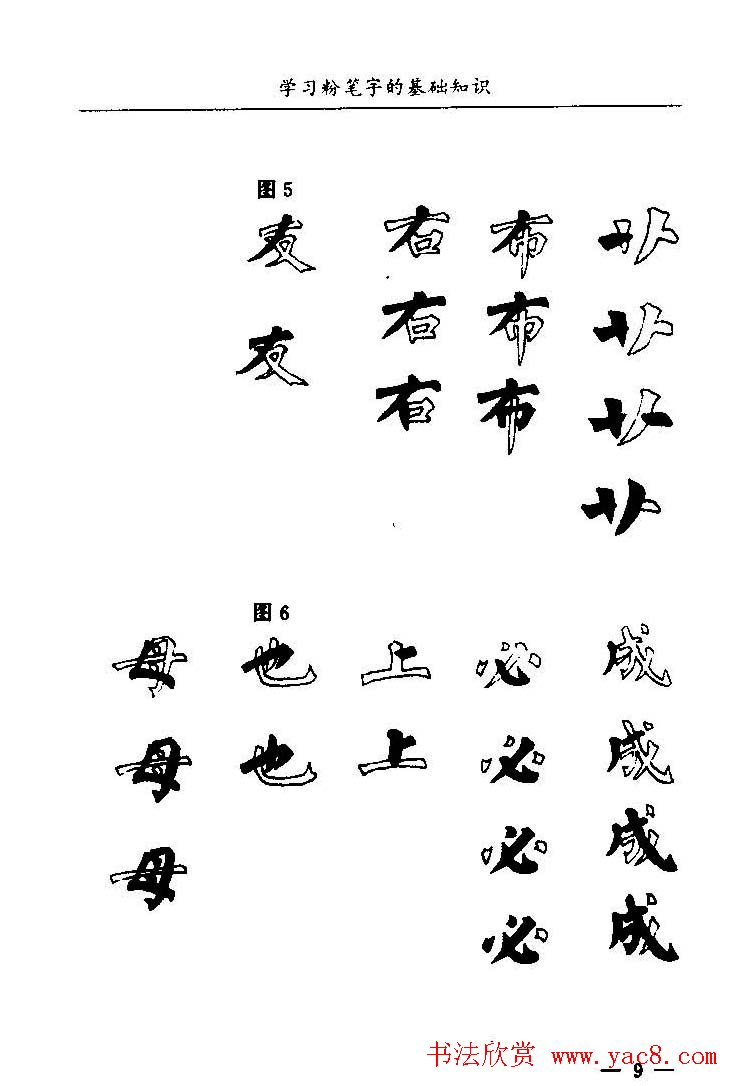 学习粉笔字的基础知识
图 5
友 右 布 㔹
友 右 布
右 布
图 6
母 也 上 必 成
母 也 上 必 成
母 必 成
必 成
书法欣赏 www.yac8.com
— 9 —